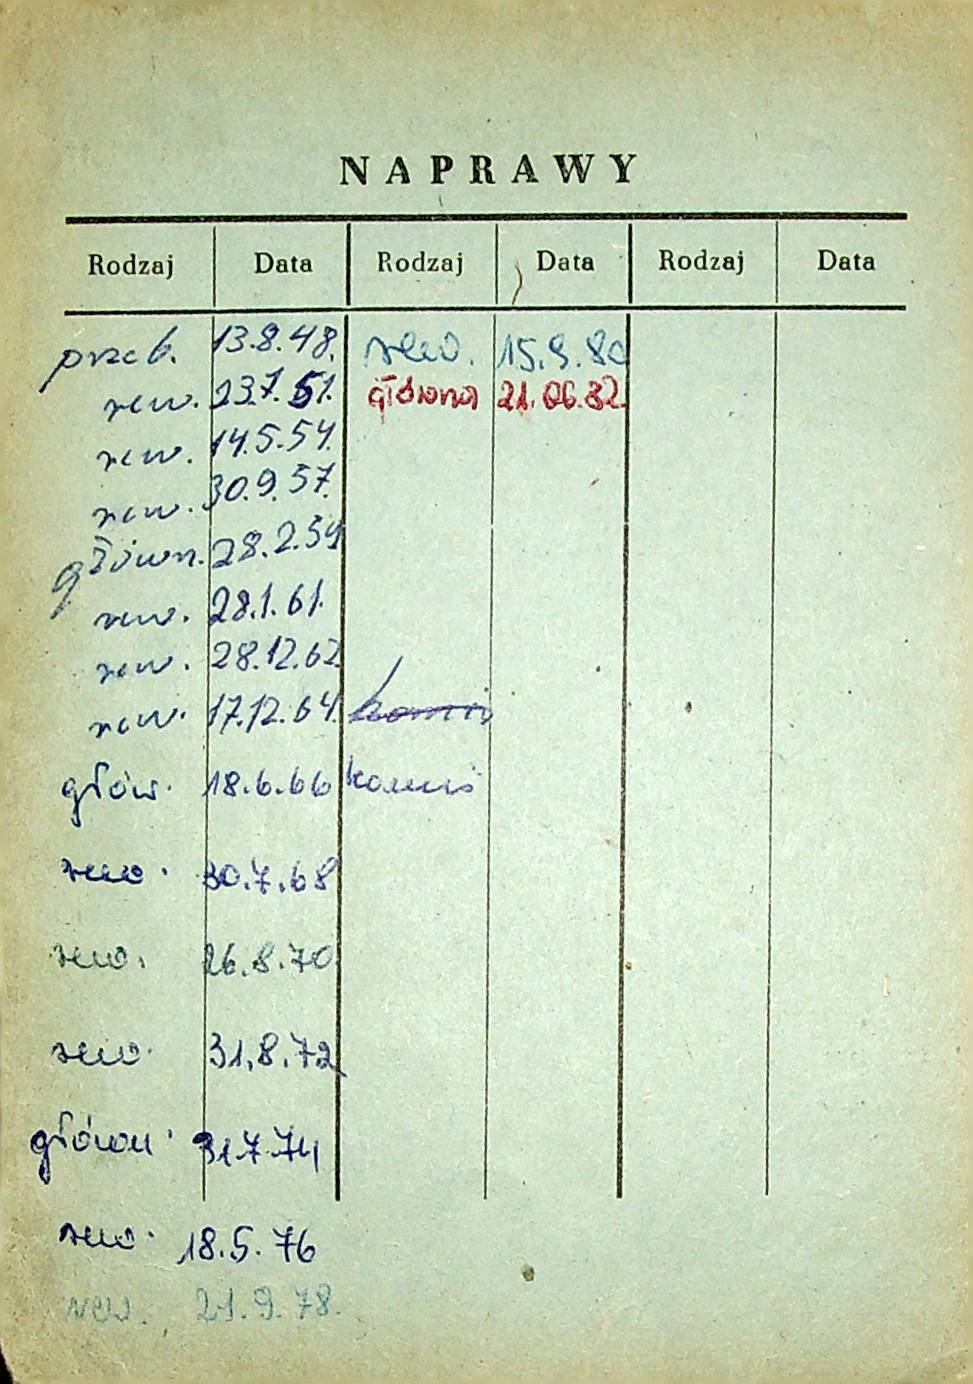 NAPRAWY
Rodzaj Data Rodzaj Data Rodzaj Data
przeb. 13.8.48. rew. 15.9.80
rew. 23.7.51. główna 21.06.82
rew. 14.5.54.
rew. 30.9.57.
główn. 28.2.59
rew. 28.1.61.
rew. 28.12.62
rew. 17.12.64.
głów. 18.6.66
rew. 30.7.68
rew. 26.8.70
rew. 31.8.72
główn. 31.7.74
rew. 18.5.76
rew. 21.9.78.